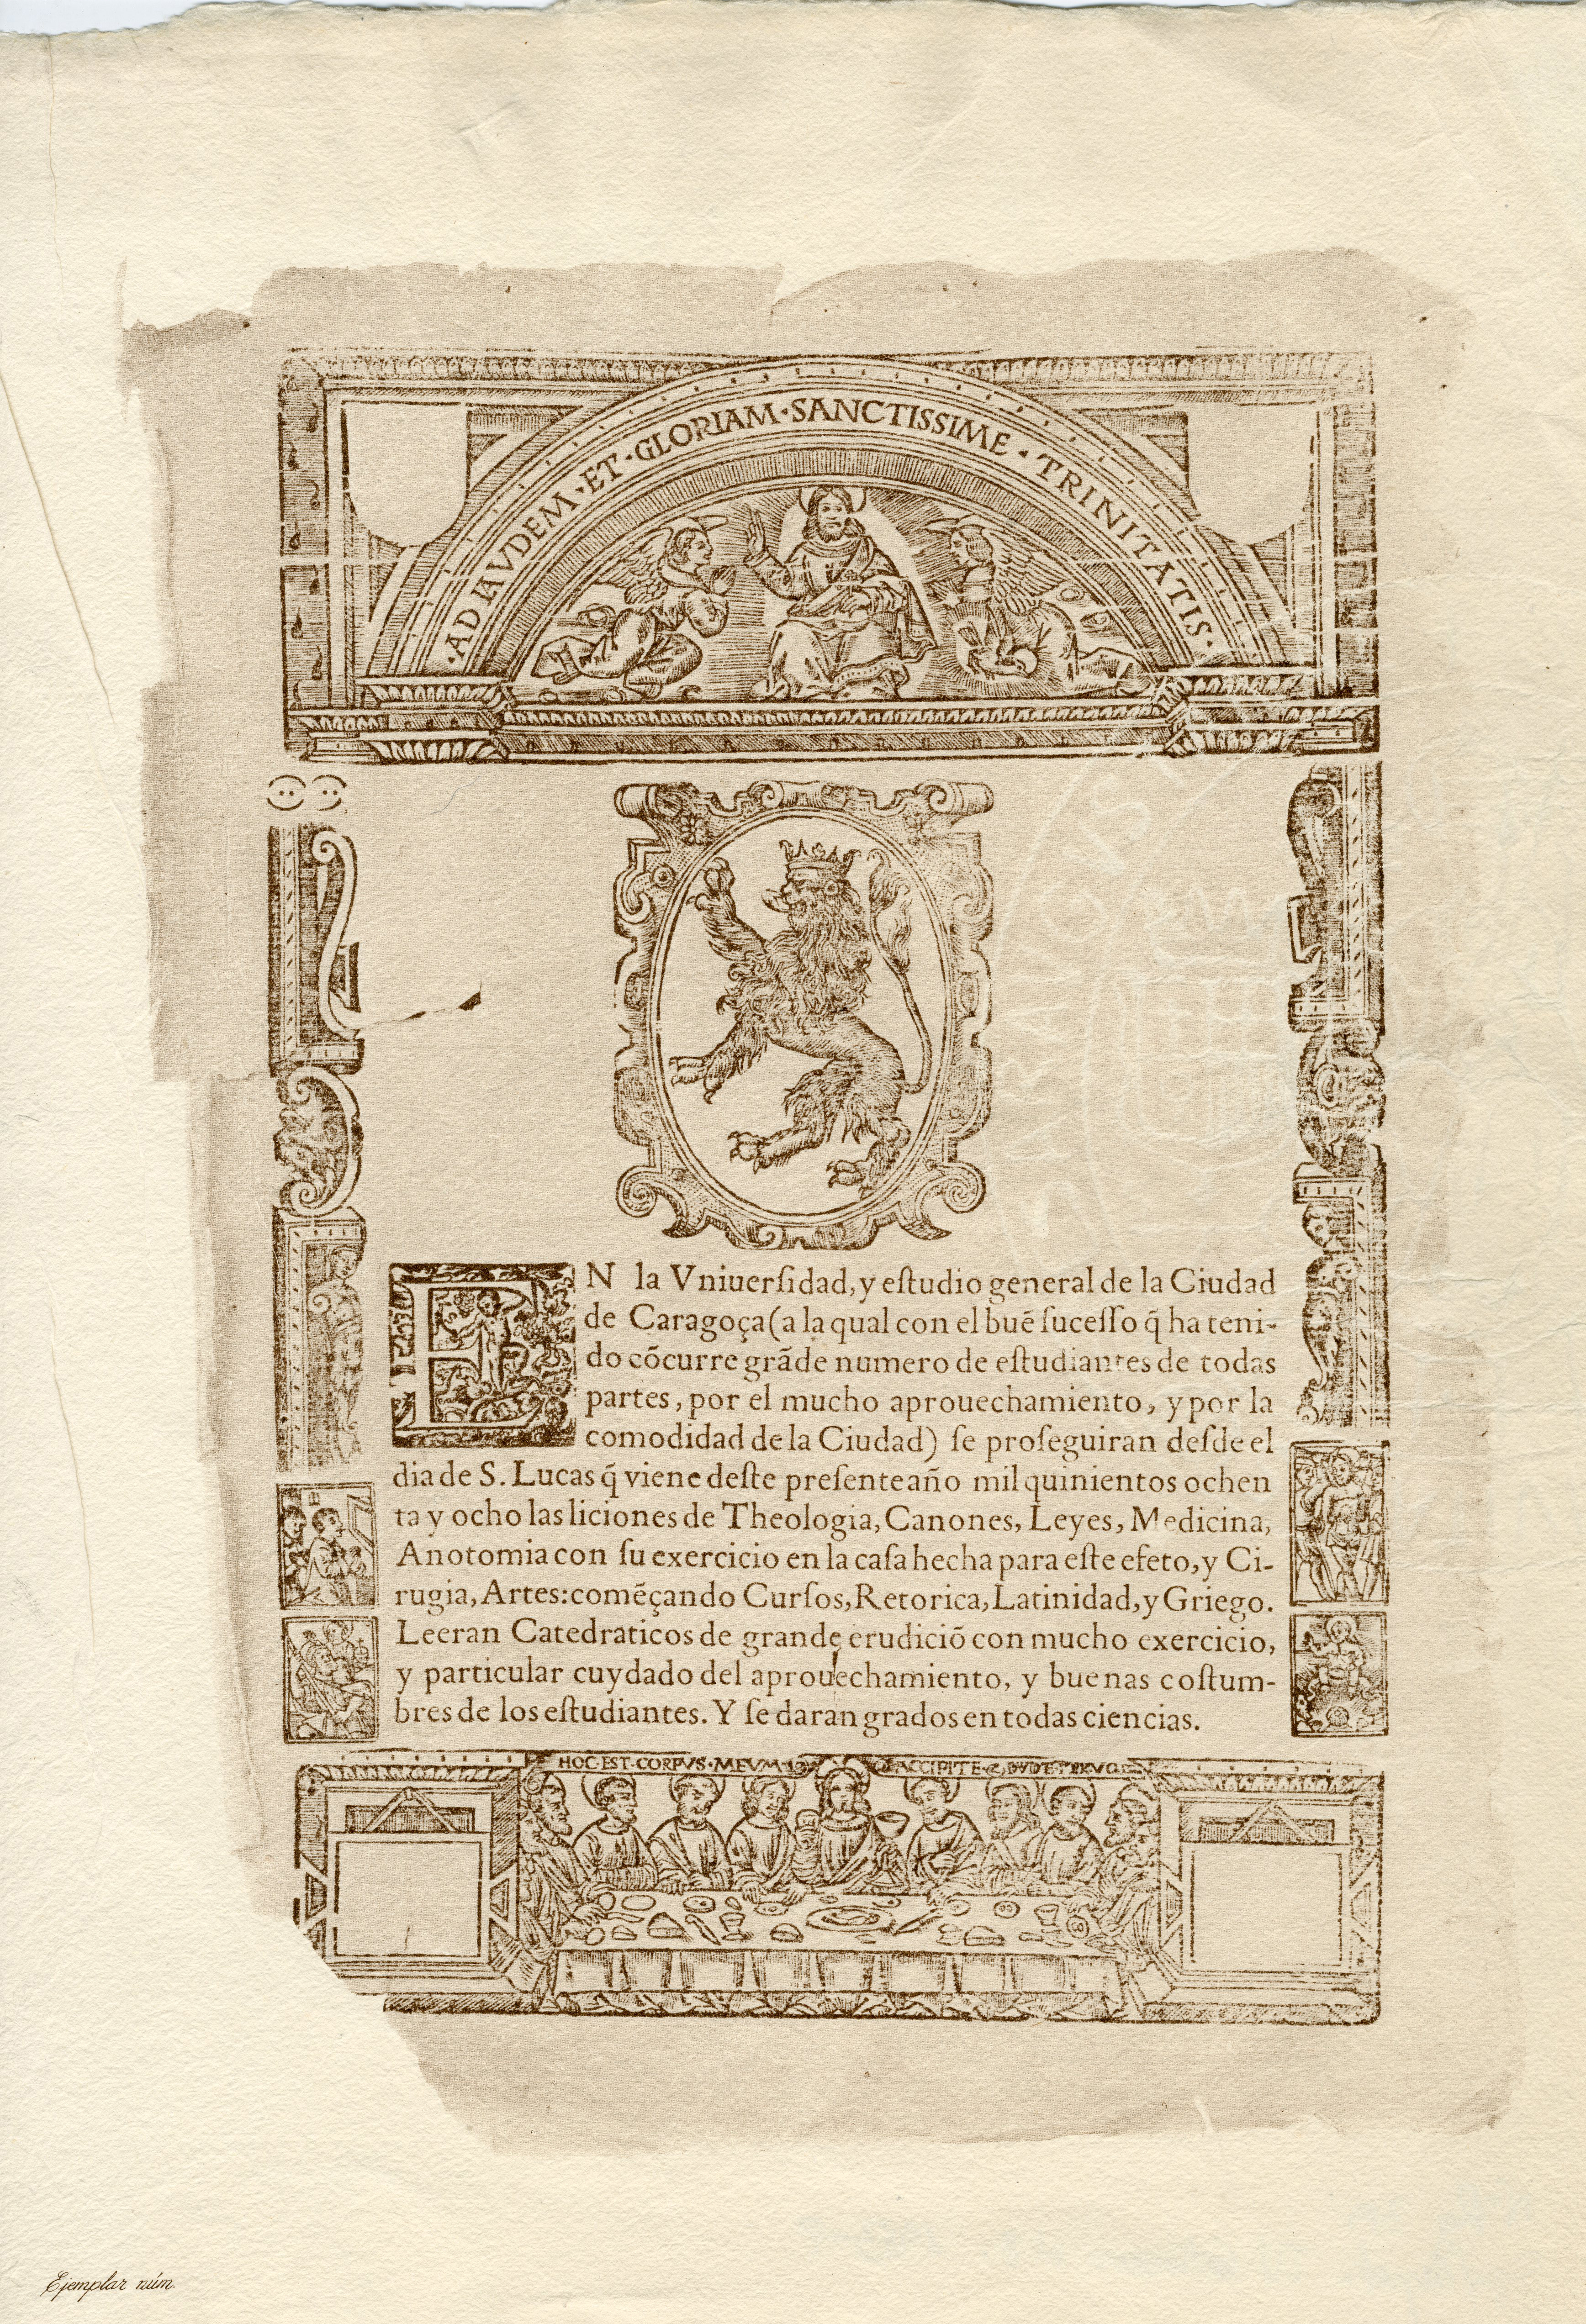 ·AD LAVDEM·ET·GLORIAM·SANCTISSIME·TRINITATIS·
EN la Vniuerſidad, y eſtudio general de la Ciudad
de Caragoça (a la qual con el buē ſuceſſo q̄ ha teni-
do cōcurre grāde numero de eſtudiantes de todas
partes, por el mucho aprouechamiento, y por la
comodidad de la Ciudad) ſe proſeguiran deſde el
dia de S. Lucas q̄ viene deſte preſente año mil quinientos ochen
ta y ocho las liciones de Theologia, Canones, Leyes, Medicina,
Anotomia con ſu exercicio en la caſa hecha para eſte efeto, y Ci-
rugia, Artes: comēçando Curſos, Retorica, Latinidad, y Griego.
Leeran Catedraticos de grande erudiciō con mucho exercicio,
y particular cuydado del aprouechamiento, y buenas coſtum-
bres de los eſtudiantes. Y ſe daran grados en todas ciencias.
HOC·EST·CORPVS·MEVM· ACCIPITE
Ejemplar núm.